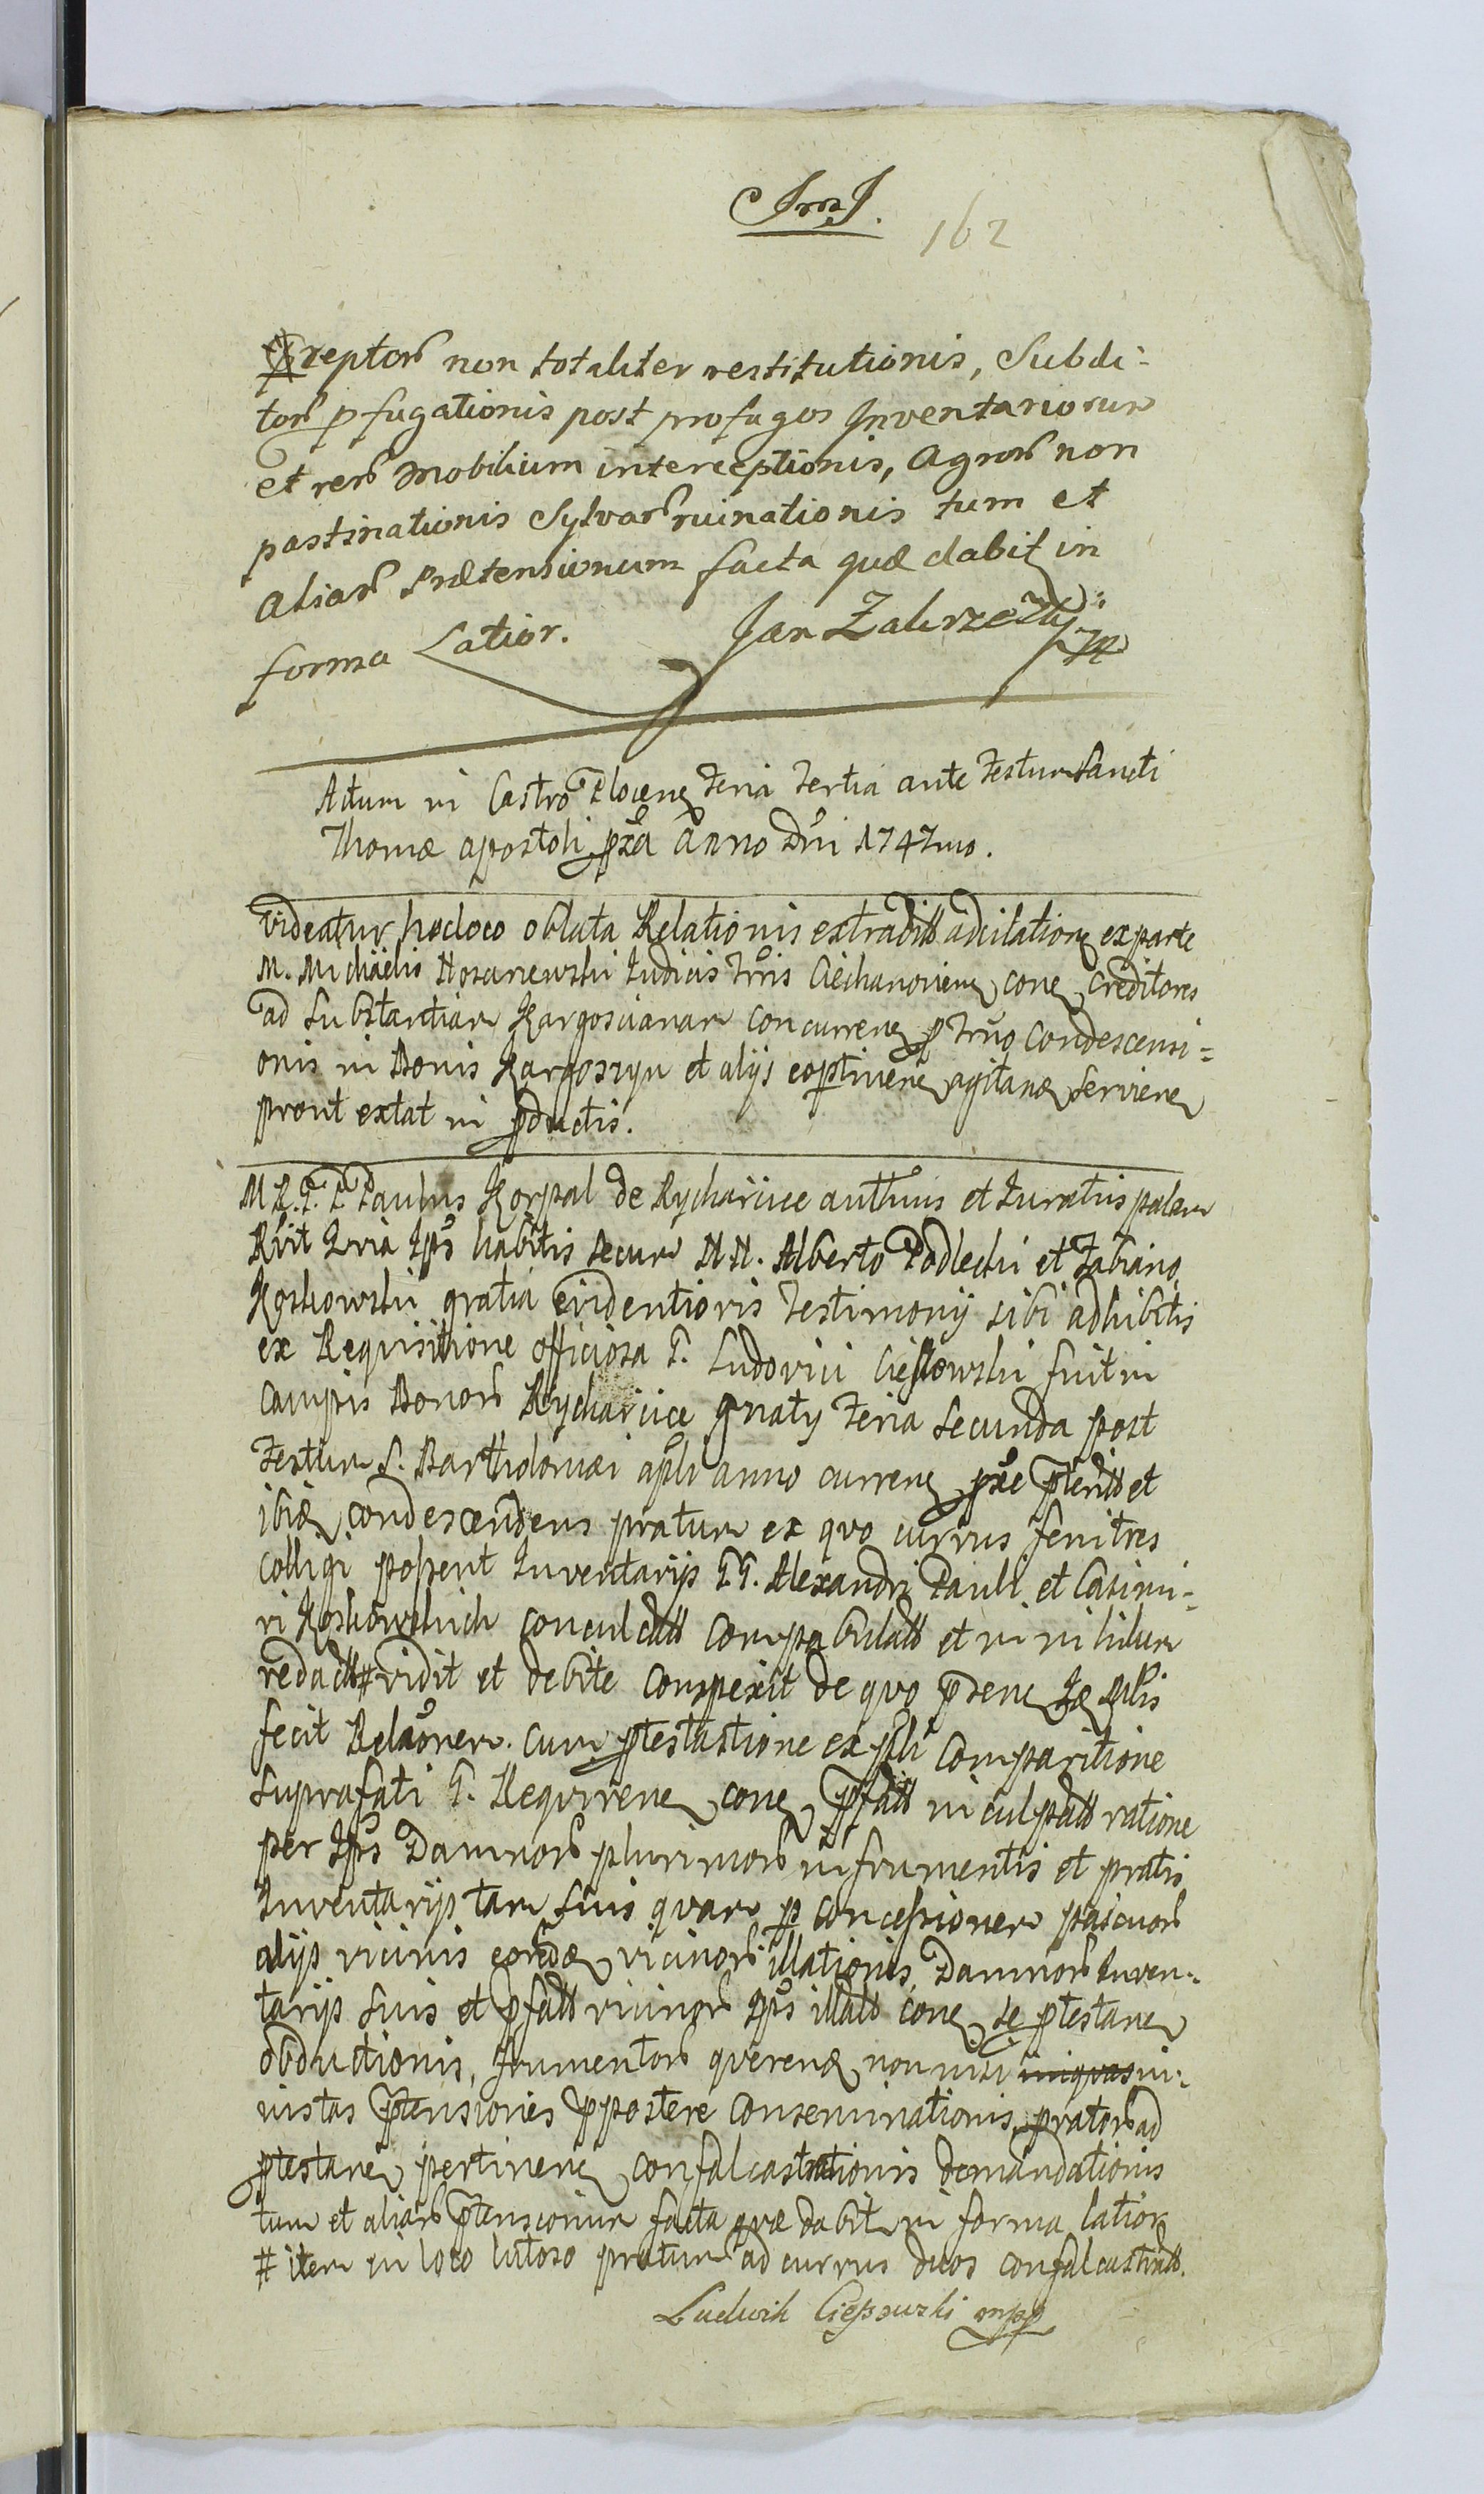 162
reptorũ non totaliter restitutionis, Subdi-
torũ pfugationis post profugos Inventariorum
et rerũ mobilium interceptionis, Agrorũ non
pastinationis Sylvarũ ruinationis tum et
aliarũ Prætensionum facta quæ dabit in
forma Latior. Jan
Actum in Castro Plocen Feria Tertia ante Festum Sancti
Thomæ apostoli pxa Anno Dni 1747mo.
Videatur hocloco oblata Relationis extradit adcitation exparte
M. Michaelis Judicis Trris Ciechanovien con Creditores
ad Substantiam Kargoscianam concurren p Trno Condescensi=
onis in Bonis Kargoszyn et alijs eoptinen agitan servien
prout extat in pductis.
M R. G. P Paulus Korpal de Rycharcice authnus et Juratus palam
Rvit Qvia Ips habitis secum NN. Alberto Podlecki et Fabiano
Koskowski gratia evidentioris Testimonij sibi adhibitis
ex Requisitione officiosa G. Ludovici Ciessowski fuit in
campis Bonorũ Rycharcice Gnaty Feria Secunda post
Festum S. Bartholomæi apli anno curren pxe pterit et
ibiđ condescendens pratum ex quo currus feni tres
colligi possent Inventarijs GG. Alexandri Pauli et Casimi-
ri Koskowskich conculcatt compabulatt et in nihilum
redactt # vidit et debite conspexit de quo psen
fecit Relaonem. Cum ptestastione ex psli comparitione
suprafati G. Requiren con pfatt inculpatt ratione
per Ips Damnorũ plurimorũ in frumentis et pratis
Inventarijs tam suis quam p concessionem pascuorũ
alijs vicinis eorũdẽ vicinorũ illationis, Damnorũ Inven-
tarijs suis et pfatt vicinorũ Ips illatt con se ptestan
obductionis, frumentorũ querenđ non nisi iniquas in-
iustas ptensiones ppostere conseminationis, pratorũ ad
ptestan pertinen confalcastrationis demandationis
tum et aliarũ ptensionum facta quæ dabit in forma latior
# item in loco lutoso pratum ad currus duos confalcastratt.
Ludwik Ciessowski mpp